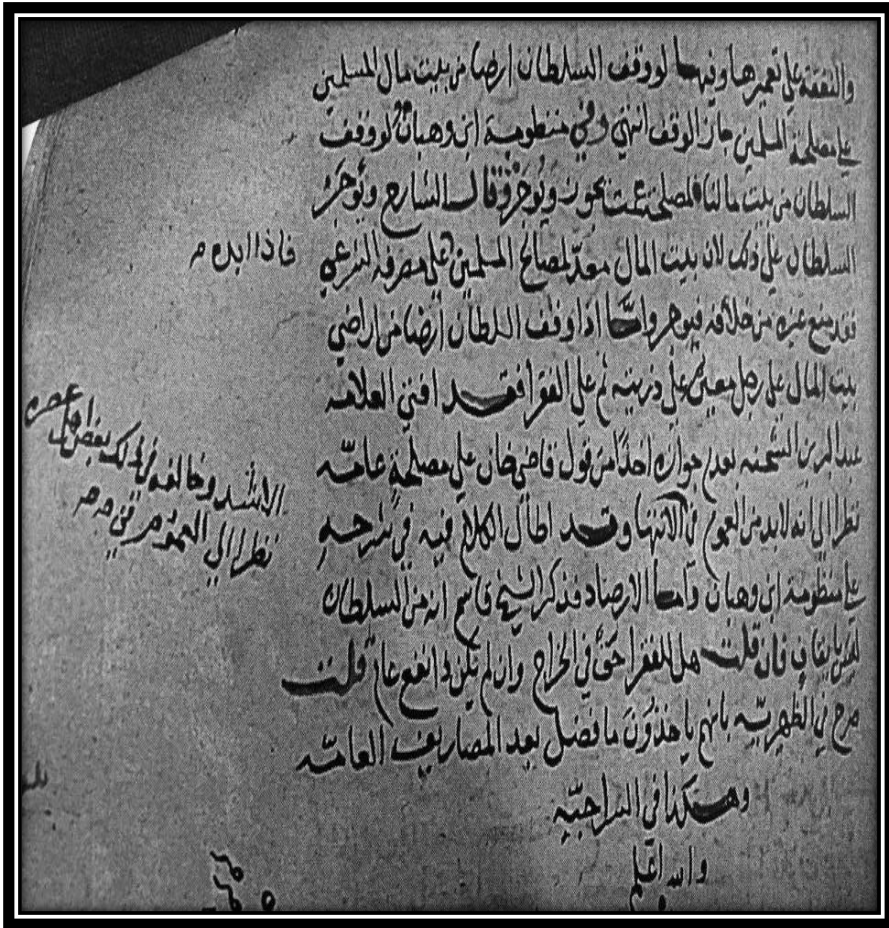 والنفقة علي تعميرها وفيها لو وقف السلطان ارضا من بيت مال المسلمين
علي مصلحة المسلمين جاز الوقف انتهي وفي منظومة ابن وهبان لو وقف
السلطان من بيت مالنا لمصلحة عمت يجوز ويوجر وقال الشارح ويوجر
السلطان علي ذلك لان بيت المال معد لمصالح المسلمين علي مصرفه الشرعي
فاذا ابده م
فقد منع غيره من خلافه فيوجر واما اذا وقف السلطان ارضا من اراضي
بيت المال علي رجل معين علي ذريته ثم علي الفقرا فقد افتي العلامه
عبد البر بن الشحنه بعدم جوازه اخذا من قول قاضي خان علي مصلحة عامه
نظرا الي انه لابد من العموم في الانتها وقد اطال الكلام فيه في شرحه
علي منظومة ابن وهبان واما الارصاد فذكر الشيخ قاسم انه من السلطان
ليس بايقاف فان قلت هل للفقرا حق في الخراج وان لم يكن نفع عام قلت
صرح في الظهريه بانهم ياخذون ما فضل بعد المصاريف العامه
وهكذا في السراجيه
والله اعلم
وخالفه في ذلك بعض اهل عصره
نظرا الي العموم